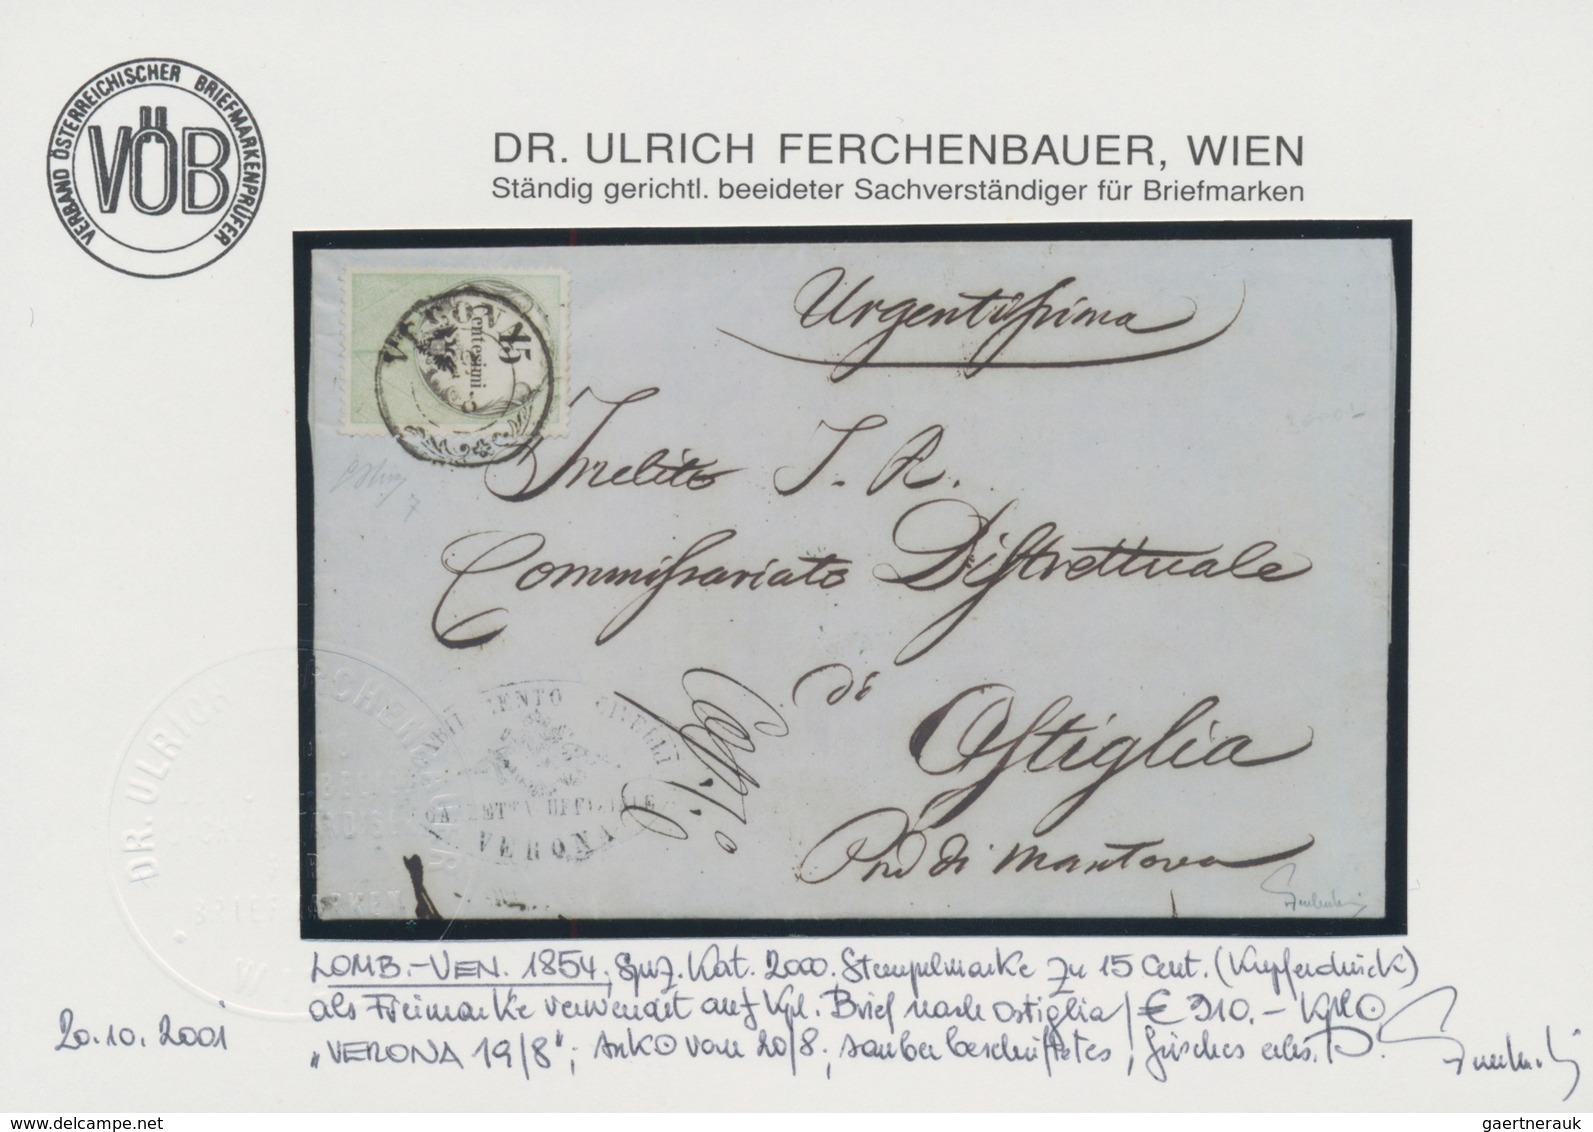 VERBAND ÖSTERREICHISCHER BRIEFMARKENPRÜFER
VÖB
DR. ULRICH FERCHENBAUER, WIEN
Ständig gerichtl. beeideter Sachverständiger für Briefmarken
VERONA
15
centesimi
Urgentissima
Inclito I. R.
Commissariato Distrettuale
di
Ostiglia
Prov di Mantova
GAZZETTA UFFIZIALE
VERONA
DR. ULRICH FERCHENBAUER
BRIEFMARKEN
LOMB.-VEN. 1854, Spez. Kat. 2000. Stempelmarke zu 15 Cent. (Kupferdruck)
als Freimarke verwendet auf kpl. Brief nach Ostiglia / € 910.- Kpl
20.10.2001
„VERONA 19/8"; Ank von 20/8; sauber beschriftetes, frisches
www.delcampe.net
gaertnerauk